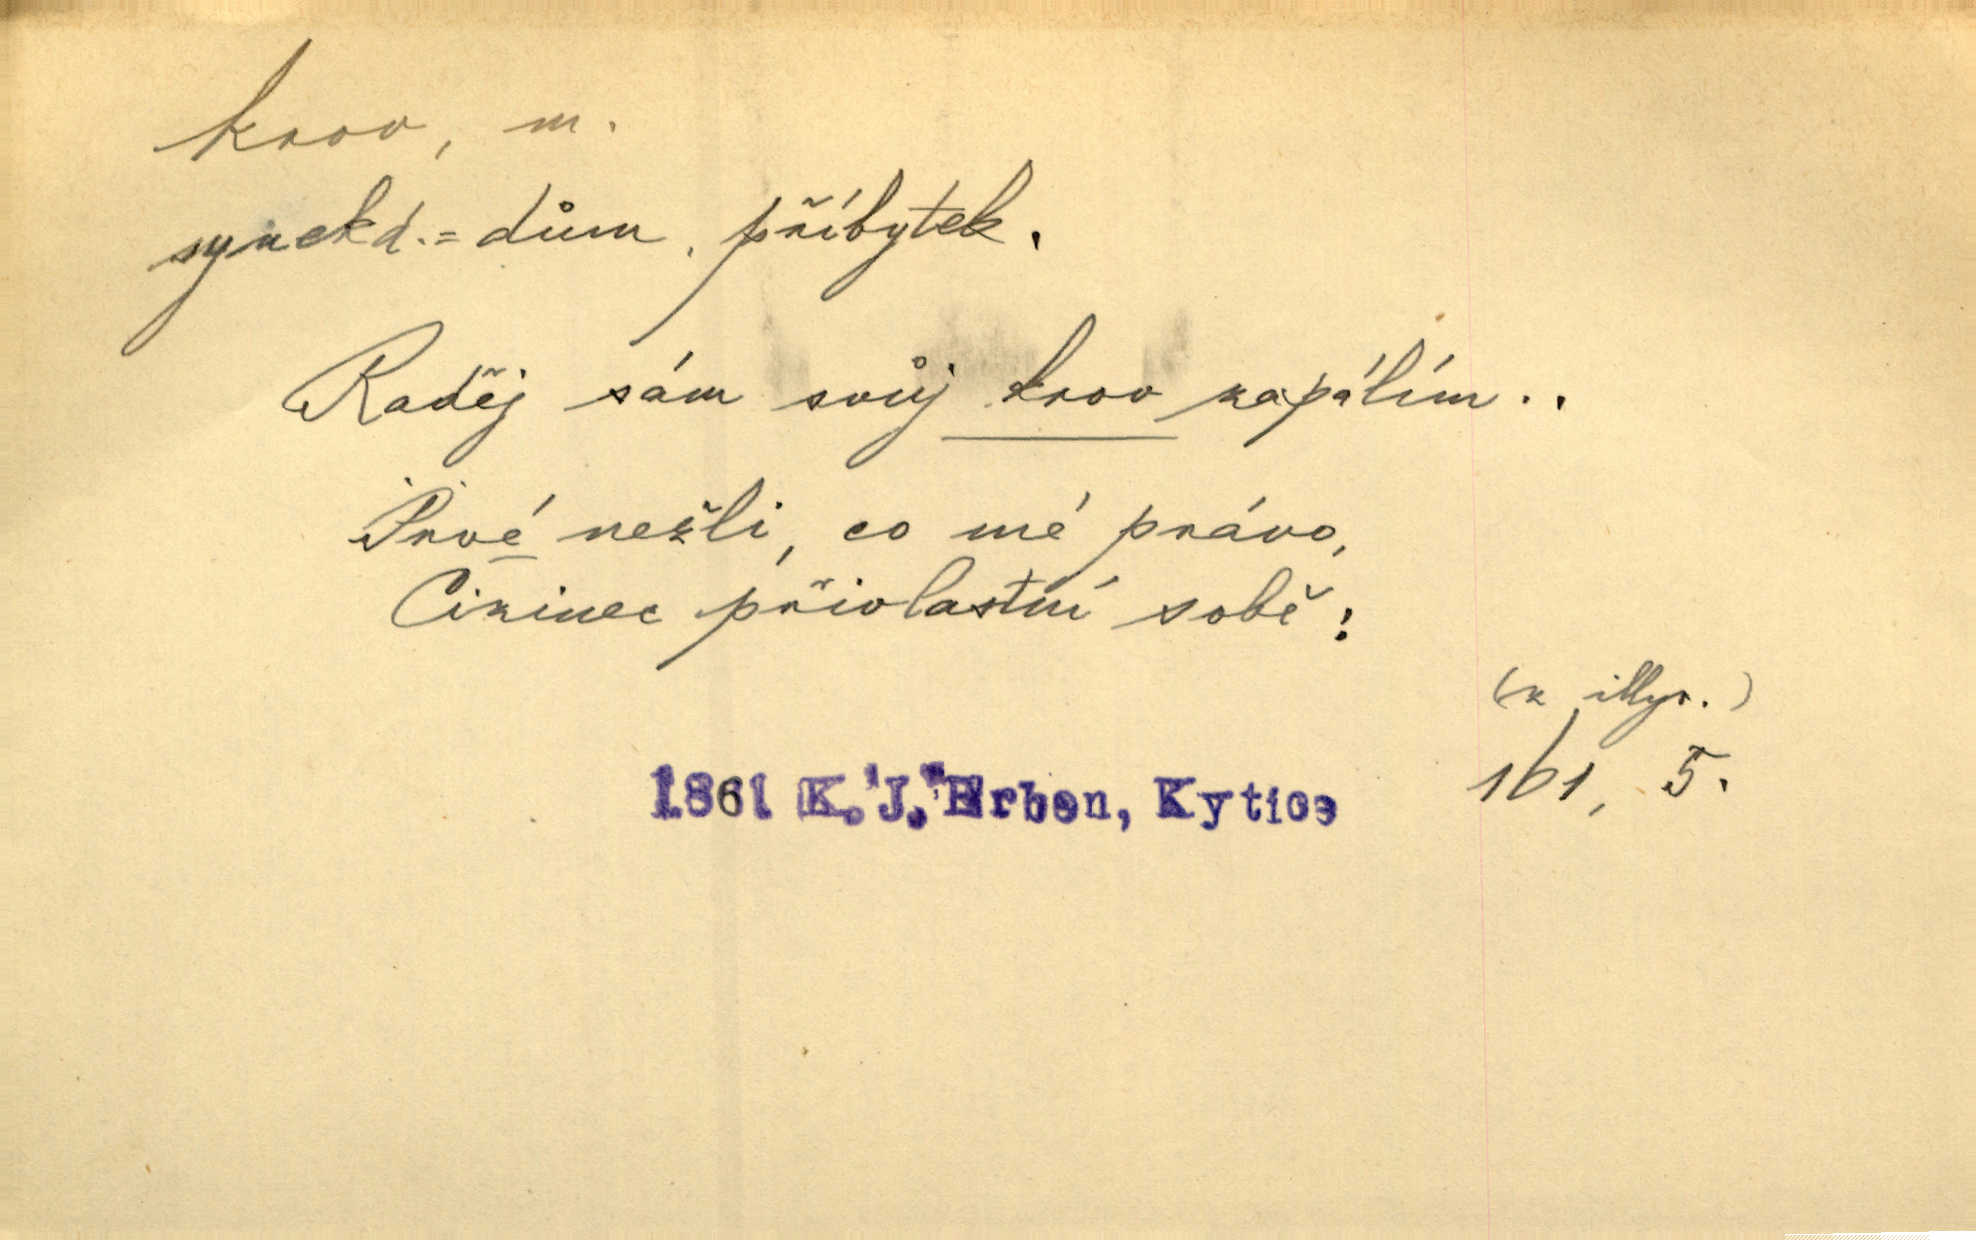 krov, m.
synekd. = dům, příbytek.
Raděj sám svůj krov zapálím..
Prvé nežli, co mé právo,
Cizinec přivlastní sobě:
(z illyr.)
161, 5.
1861 K. J. Erben, Kytice